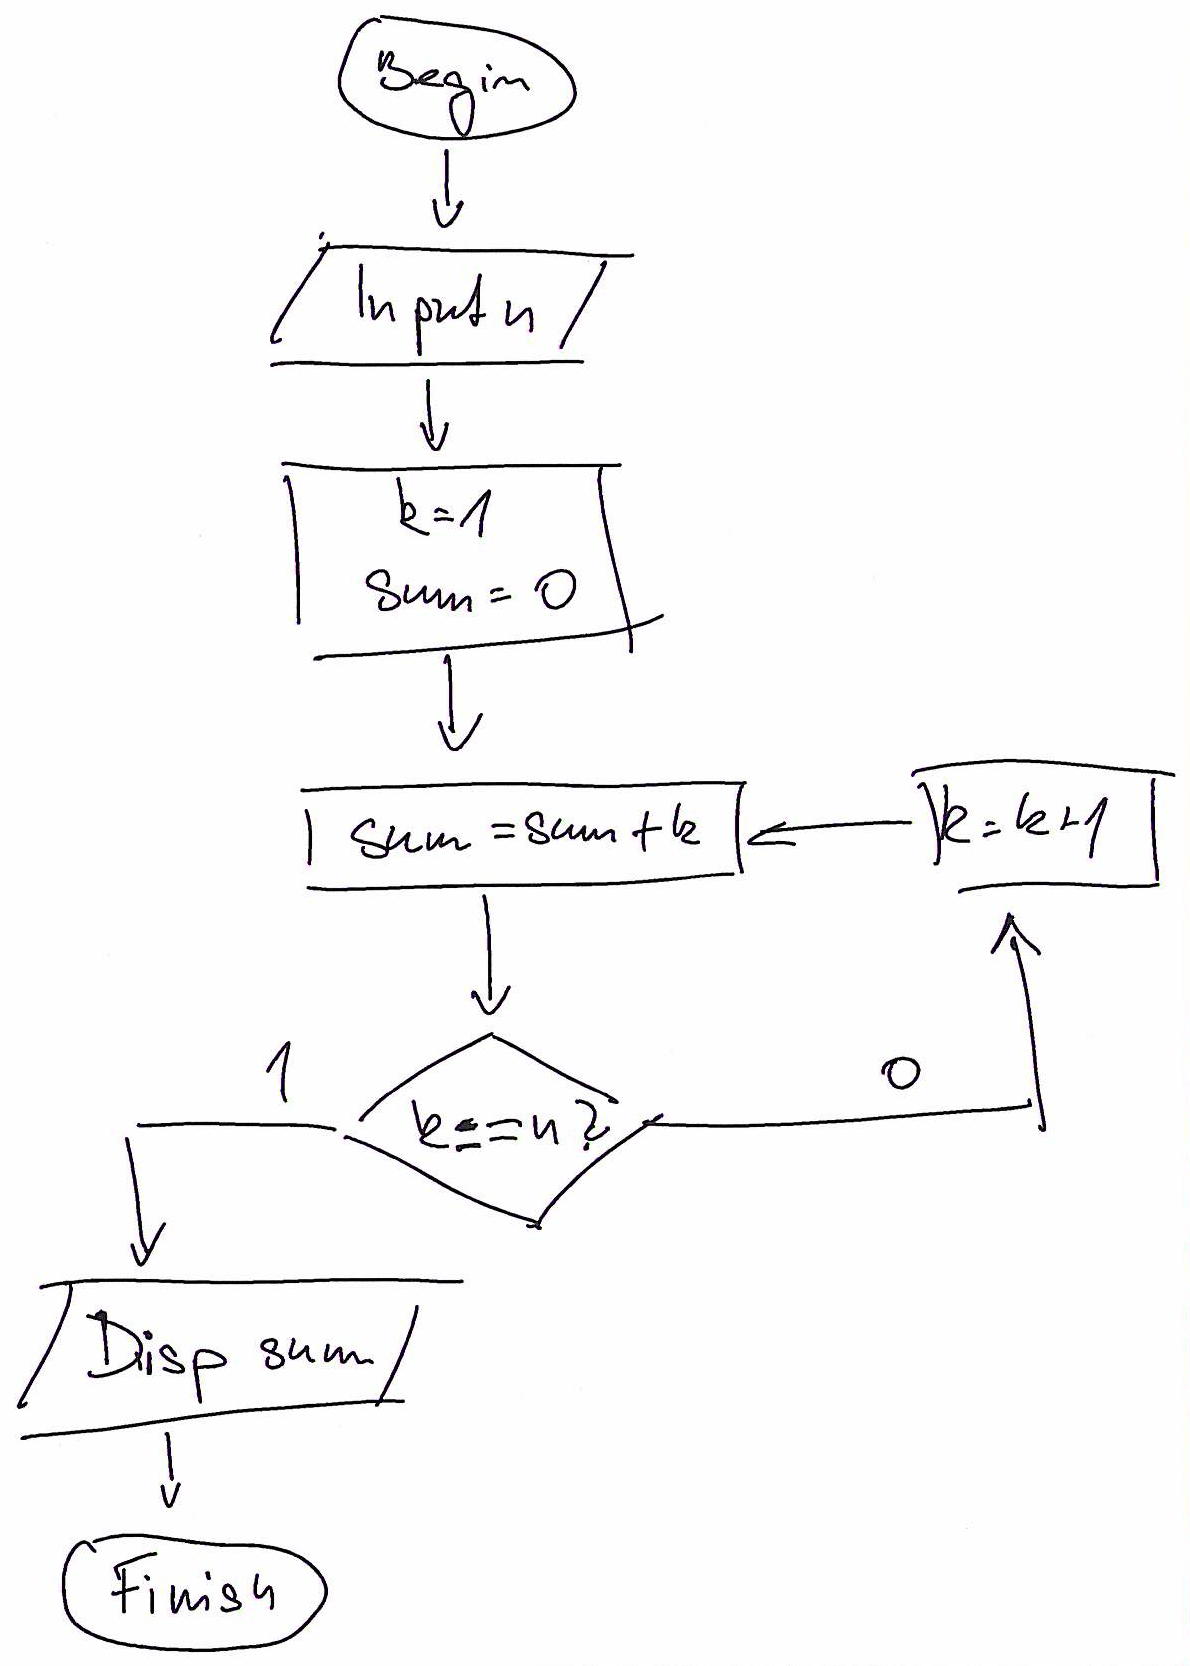 Begin
Input n
k=1
sum = 0
sum = sum + k
k = k+1
1
0
k == n?
Disp sum
Finish